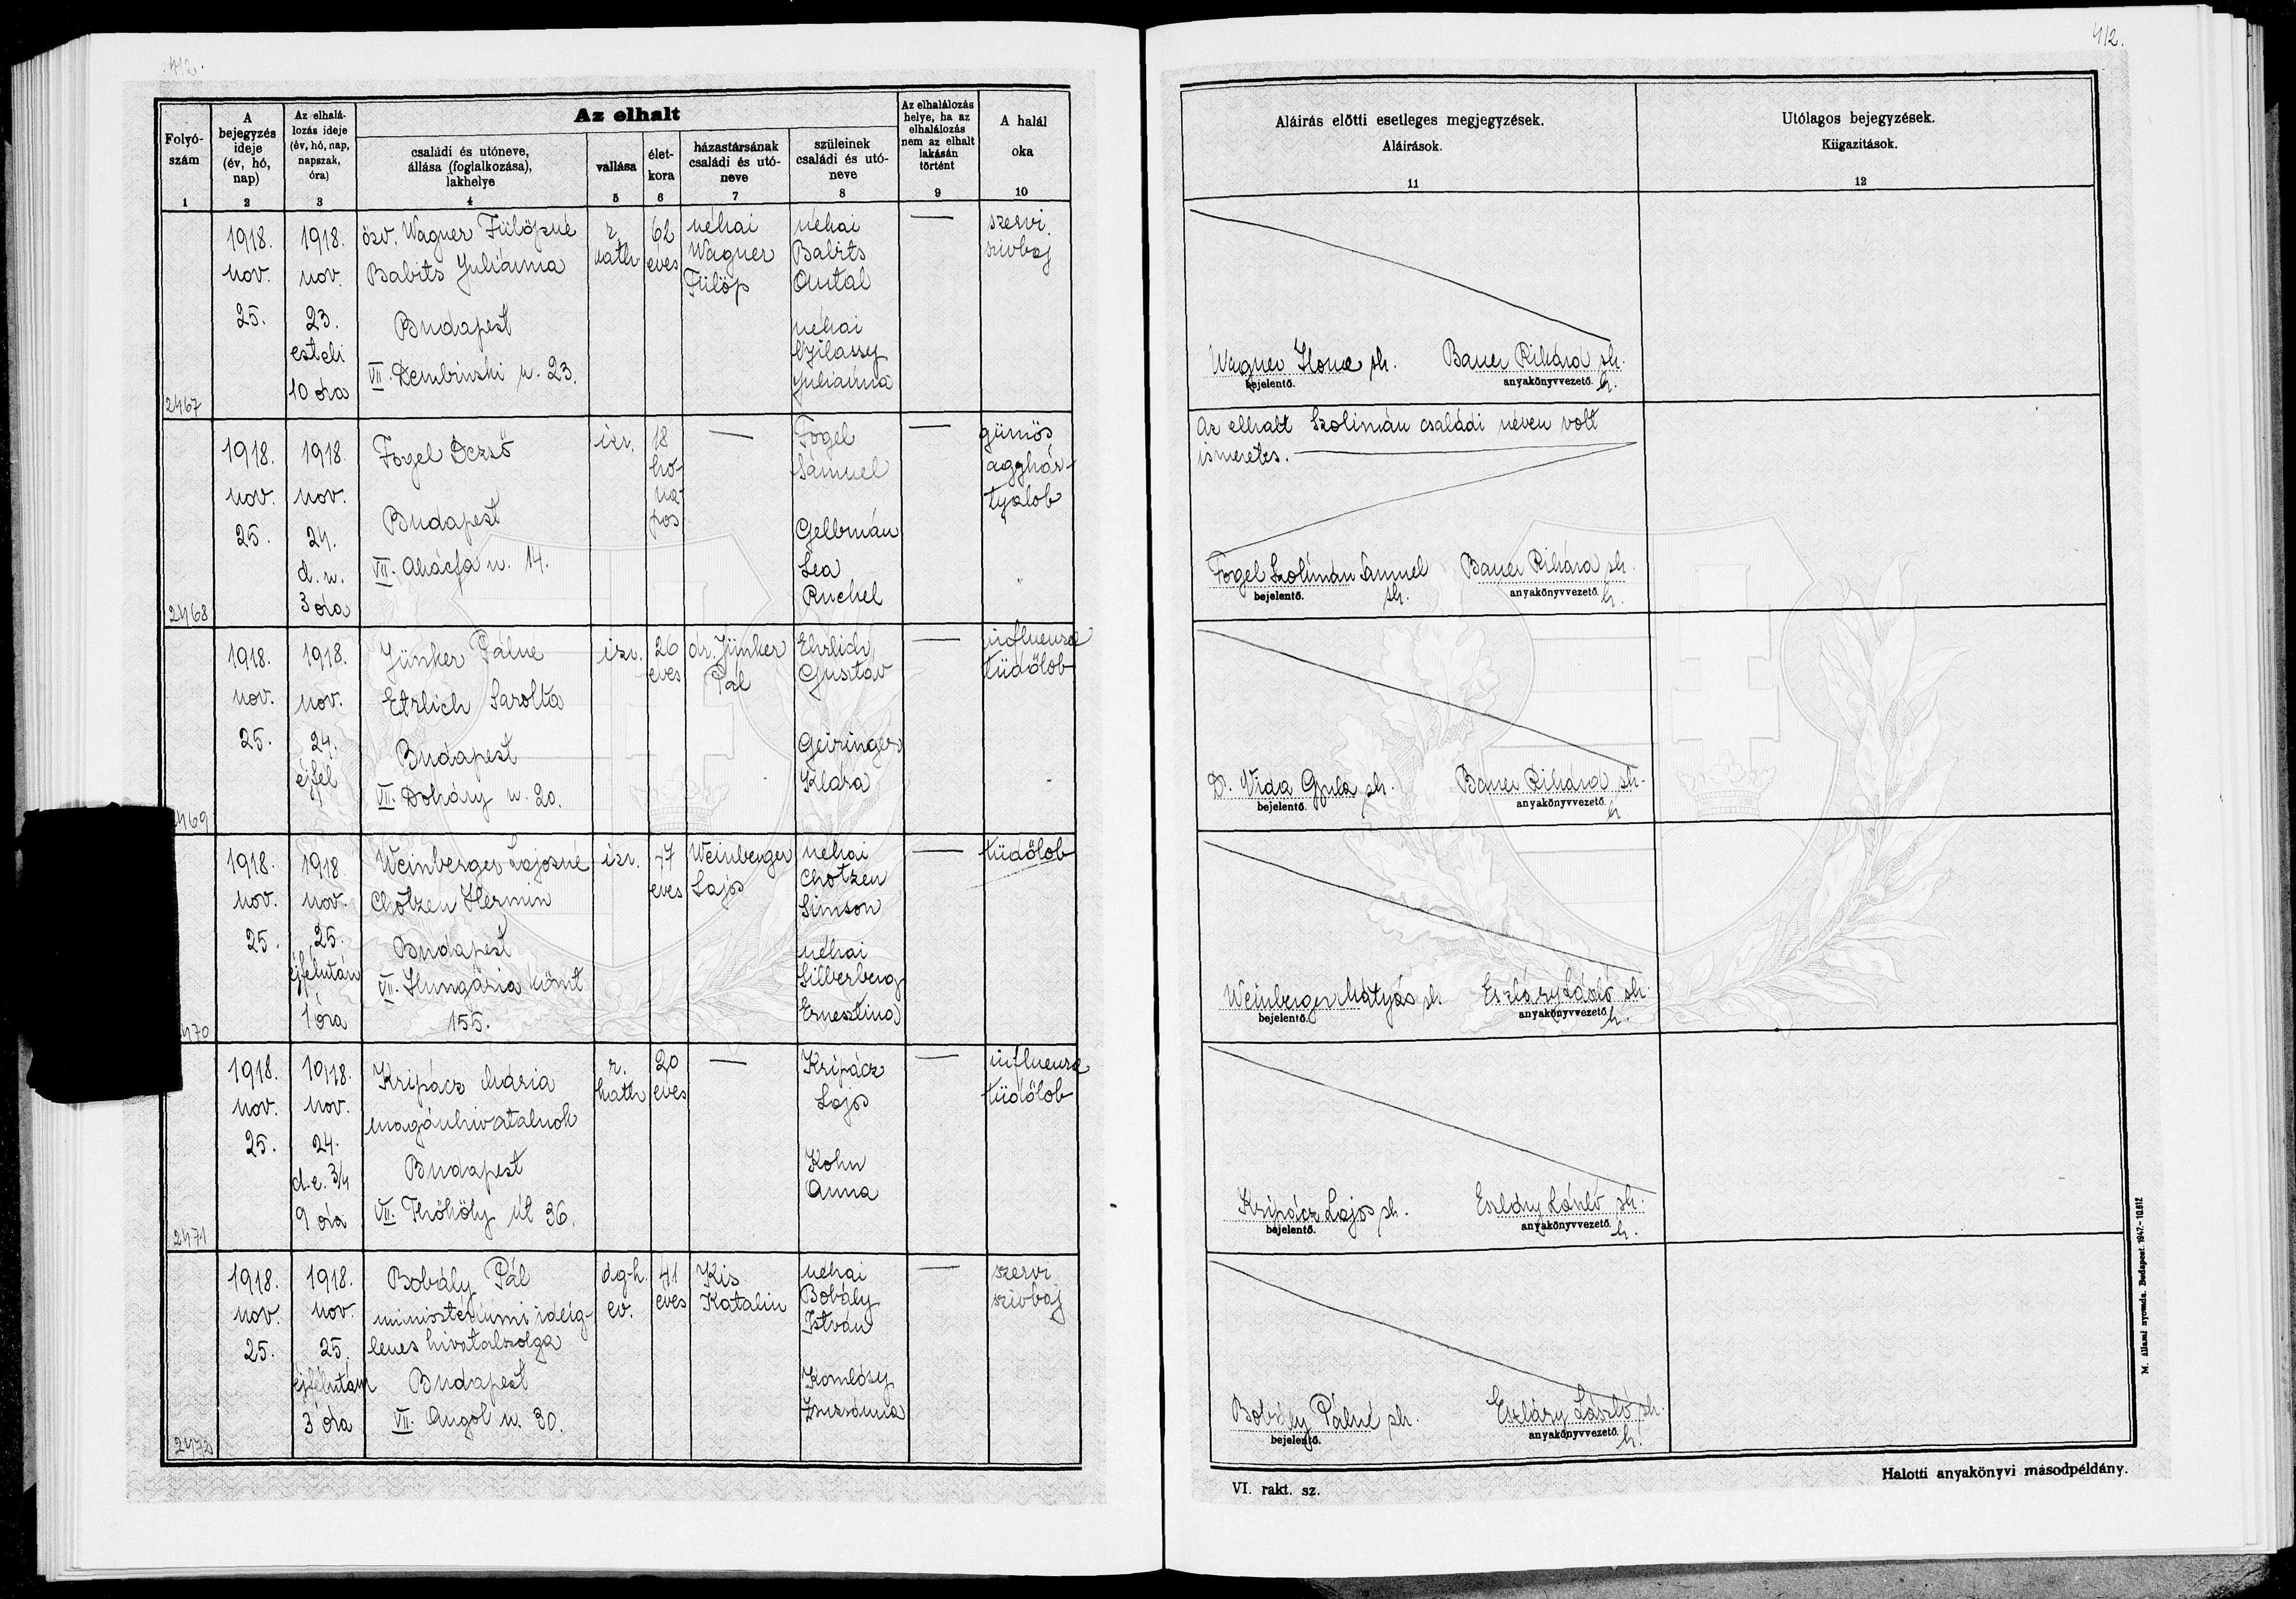 412.
412.
Folyószám
A bejegyzés ideje (év, hó, nap)
Az elhalálozás ideje (év, hó, nap, napszak, óra)
Az elhalt
családi és utóneve, állása (foglalkozása), lakhelye
vallása
életkora
házastársának családi és utóneve
szüleinek családi és utóneve
Az elhalálozás helye, ha az elhalálozás nem az elhalt lakásán történt
A halál oka
1 2 3 4 5 6 7 8 9 10
Aláírás előtti esetleges megjegyzések.
Aláírások.
11
Utólagos bejegyzések.
Kiigazítások.
12
2467
1918. nov. 25.
1918. nov. 23. esteli 10 óra
özv. Wagner Fülöpné
Babits Julianna
Budapest
VII. Dembinski u. 23.
r. kath
62 éves
néhai Wagner Fülöp
néhai Babits Antal
néhai Julianna
—
szervi szivbaj
Wagner Ilona sk.
bejelentő.
Bauer Rihárd sk.
anyakönyvvezető. h.
2468
1918. nov. 25.
1918. nov. 24. d. u. 3 óra
Fogel Dezső
Budapest
VII. Akácfa u. 14.
izr.
18 hónapos
—
Fogel Sámuel
Gelbmán Lea Ruchel
—
gümős agyhártyalob
Az elhalt Szolimán családi néven volt
ismeretes.
Fogel Szolimán Samuel sk.
bejelentő.
Bauer Rihárd sk.
anyakönyvvezető. h.
2469
1918. nov. 25.
1918. nov. 24. éjfél
Jünker Pálné
Etrlich Sarolta
Budapest
VII. Dohány u. 20.
izr.
26 éves
dr. Jünker Pál
Ehrlich Gusztáv
Geiringer Klára
—
influenza tüdőlob
Dr. Vida Gyula sk.
bejelentő.
Bauer Rihárd sk.
anyakönyvvezető. h
470
1918. nov. 25.
1918 nov. 25. éjfélután 1 óra
Weinberger Lajosné
Chotzen Hermin
Budapest
VII. Hungária körut
155.
izr.
47 éves
Weinberger Lajos
néhai Chotzen Simson
néhai Silberberg Ernesztina
—
tüdőlob
Weinberger Mátyás sk
bejelentő.
Eszláry László sk.
anyakönyvvezető h.
2471
1918. nov. 25.
1918. nov. 24. d. e. 3/4 9 óra
Kripácz Mária
magánhivatalnok
Budapest
VII. Thököly út 36.
r. kath
20 éves
—
Kripácz Lajos
Kohn Anna
—
influenza tüdőlob
Kripácz Lajos sk.
bejelentő.
Eszláry László sk.
anyakönyvvezető. h.
2472
1918. nov. 25.
1918. nov. 25. éjfélután 3 óra
Bobály Pál
ministeriumi ideig-
lenes hivatalszolga
Budapest
VII. Angol u. 30.
ág. h. ev.
41 éves
Kis Katalin
néhai Bobály István
Komlósy Zsuzsánna
—
szervi szivbaj
Bobály Pálné sk.
bejelentő.
Eszláry László sk.
anyakönyvvezető. h.
VI. rakt. sz.
Halotti anyakönyvi másodpéldány.
M. állami nyomda. Budapest. 1947.—10.612